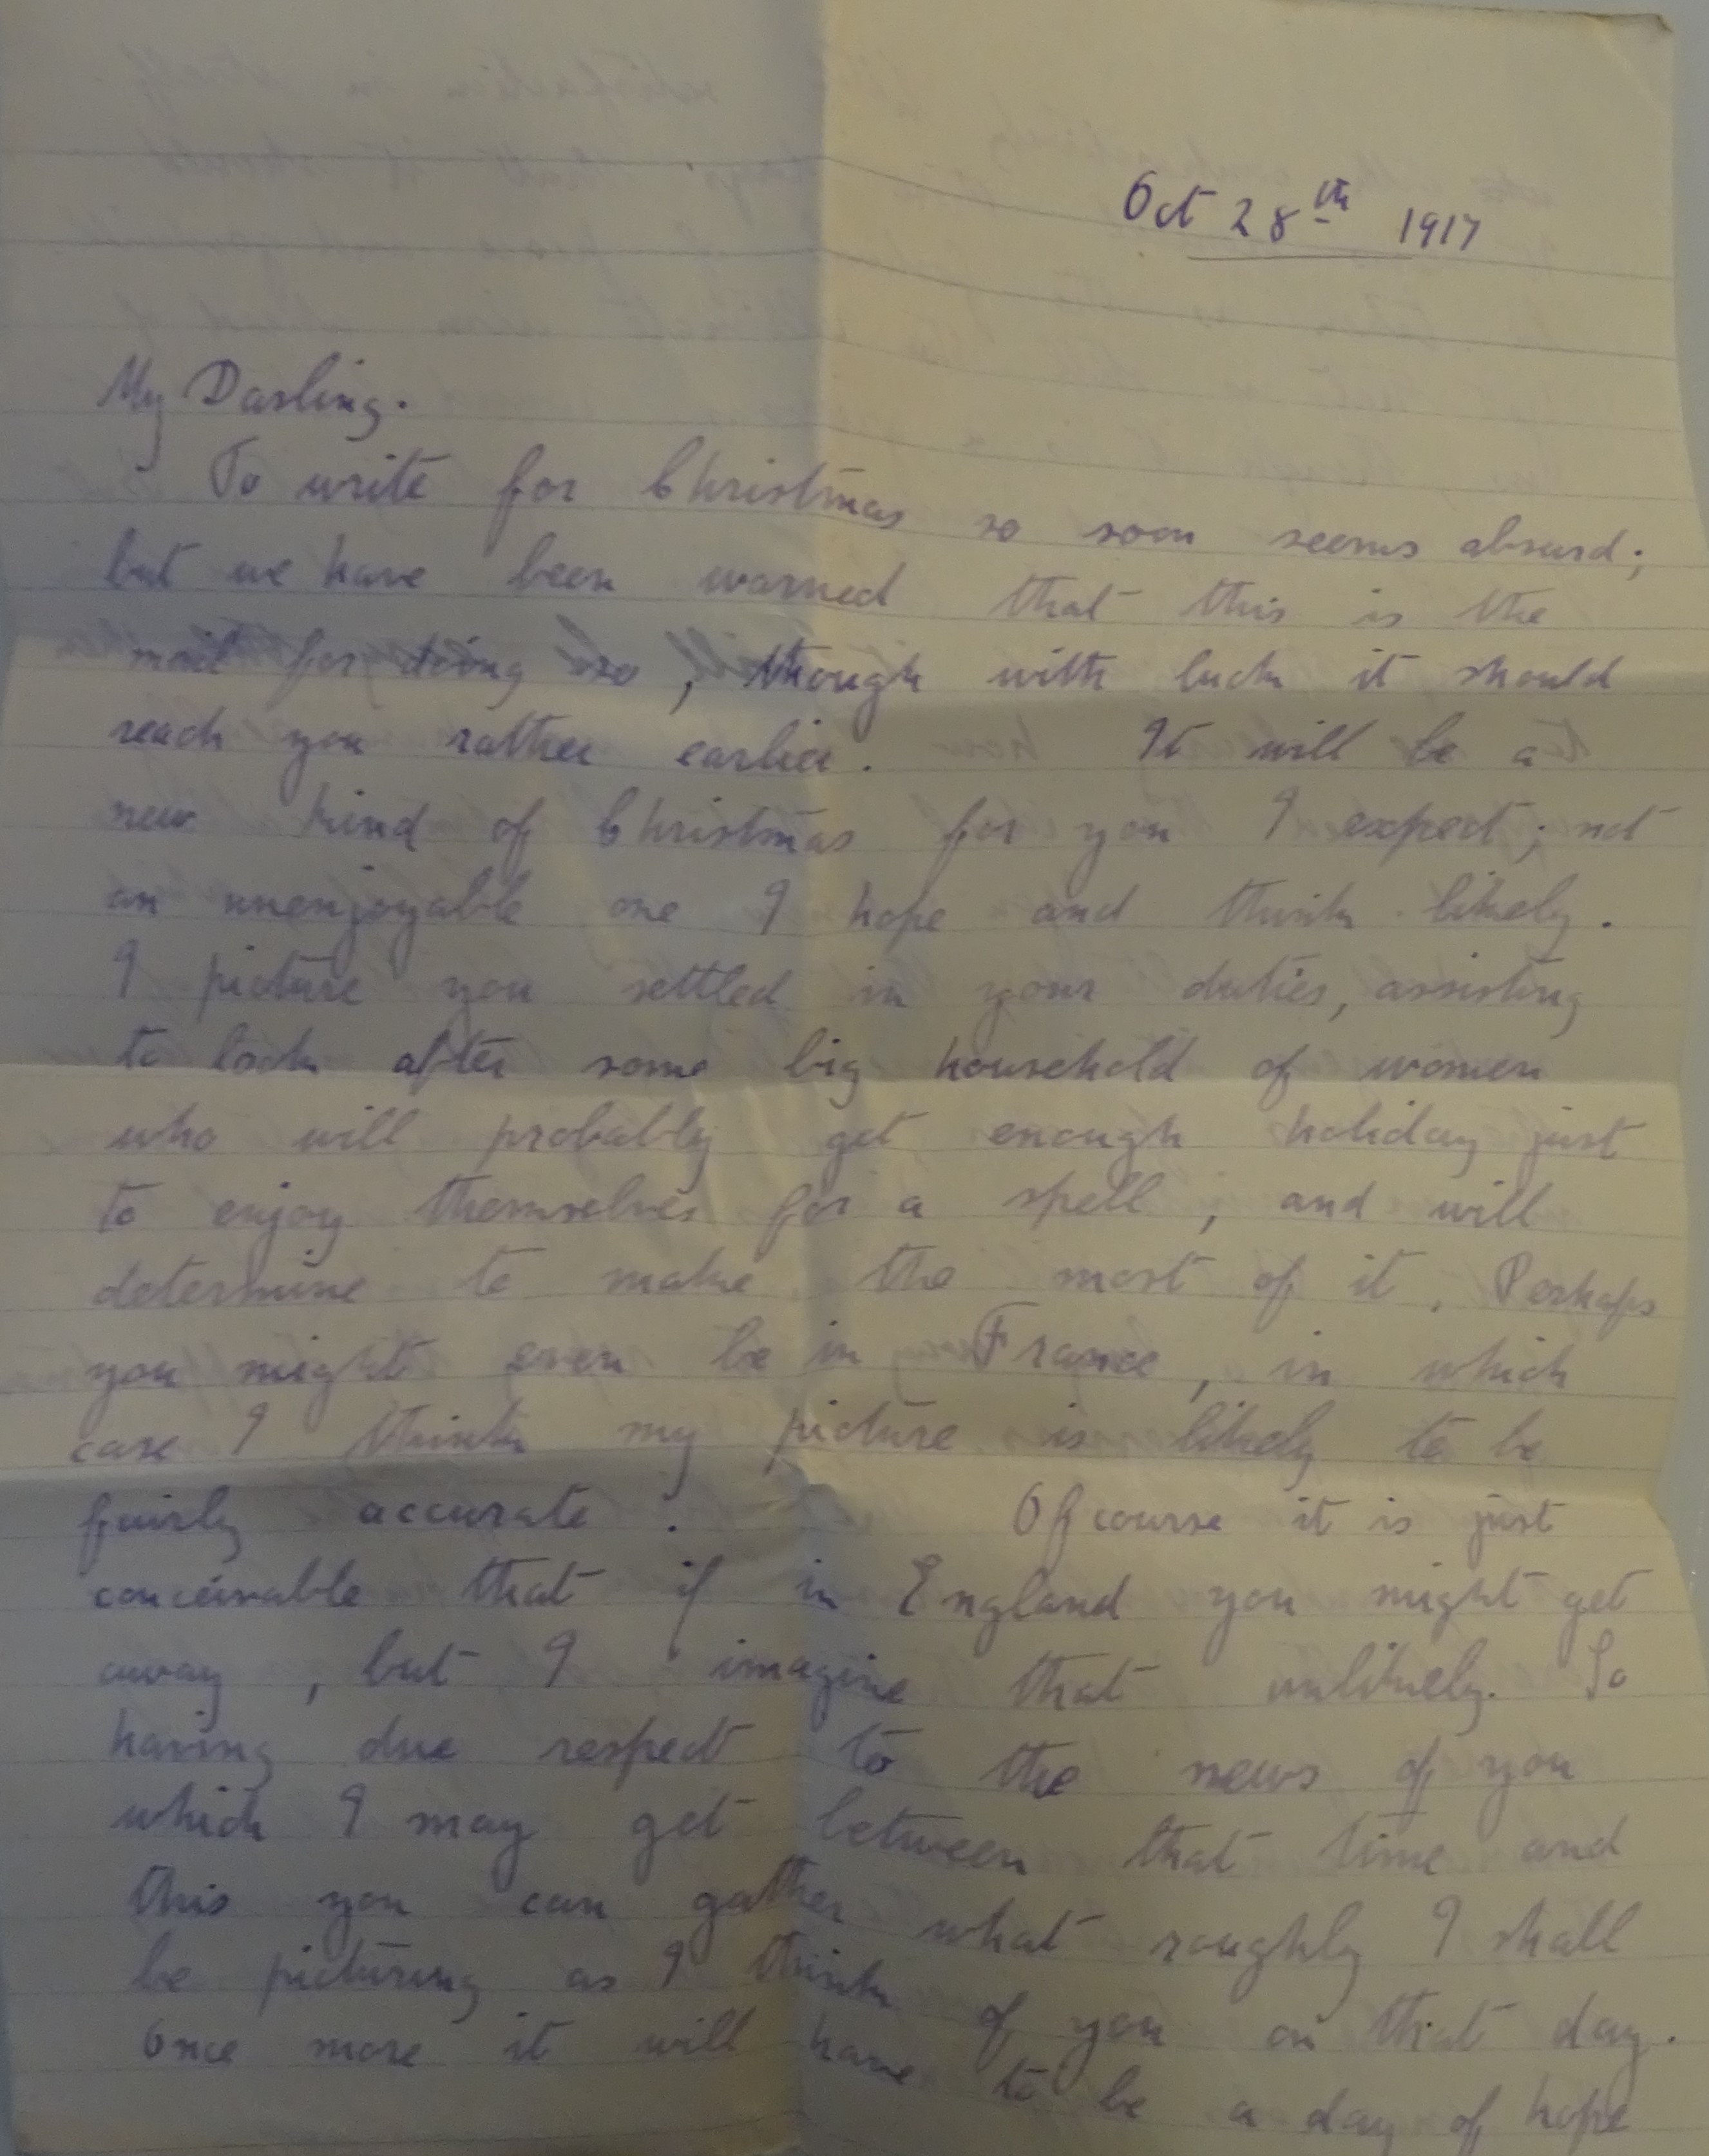 Oct 28th 1917
My Darling.
To write for Christmas so soon seems absurd;
but we have been warned that this is the
mail for doing so, though with luck it should
reach you rather earlier. It will be a
new kind of Christmas for you I expect; not
an unenjoyable one I hope and think likely.
I picture you settled in your duties, assisting
to look after some big household of women
who will probably get enough holiday just
to enjoy themselves for a spell, and will
determine to make the most of it. Perhaps
you might even be in France, in which
case I think my picture is likely to be
fairly accurate. Of course it is just
conceivable that if in England you might get
away, but I imagine that unlikely. So
having due respect to the news of you
which I may get between that time and
this you can gather what roughly I shall
be picturing as I think of you on that day.
Once more it will have to be a day of hope